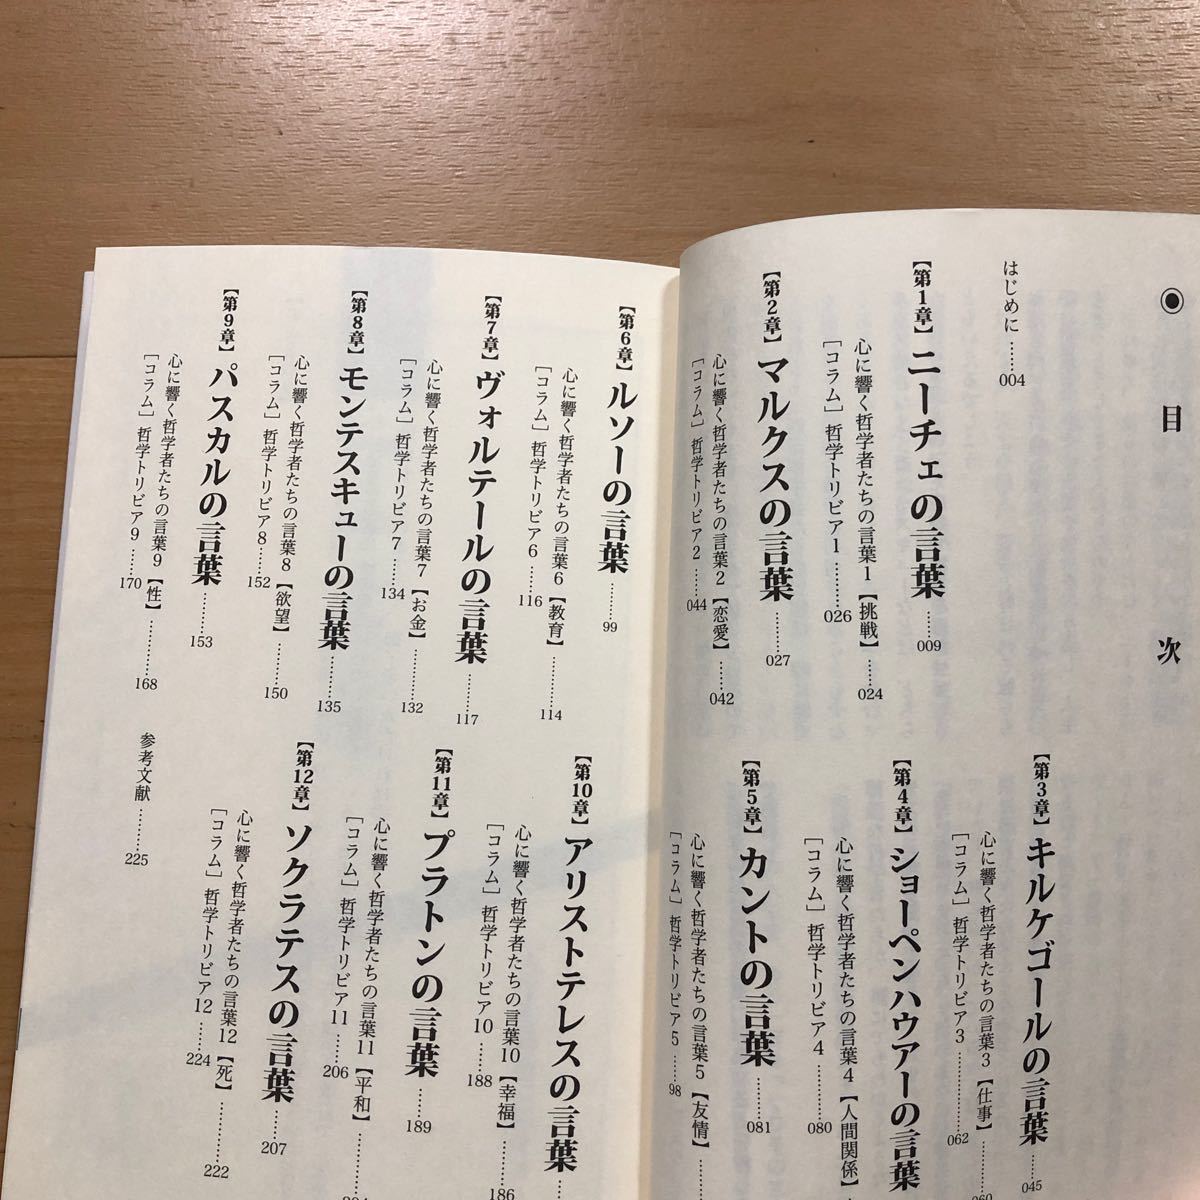 ◉目次
はじめに……004
【第1章】ニーチェの言葉……009
心に響く哲学者たちの言葉1【挑戦】……024
［コラム］哲学トリビア1……026
【第2章】マルクスの言葉……027
心に響く哲学者たちの言葉2【恋愛】……042
［コラム］哲学トリビア2……044
【第3章】キルケゴールの言葉……045
心に響く哲学者たちの言葉3【仕事】……060
［コラム］哲学トリビア3……062
【第4章】ショーペンハウアーの言葉
心に響く哲学者たちの言葉4【人間関係】
［コラム］哲学トリビア4……080
【第5章】カントの言葉……081
心に響く哲学者たちの言葉5【友情】……
［コラム］哲学トリビア5……98
【第6章】ルソーの言葉……99
心に響く哲学者たちの言葉6【教育】……114
［コラム］哲学トリビア6……116
【第7章】ヴォルテールの言葉……117
心に響く哲学者たちの言葉7【お金】……132
［コラム］哲学トリビア7……134
【第8章】モンテスキューの言葉……135
心に響く哲学者たちの言葉8【欲望】……150
［コラム］哲学トリビア8……152
【第9章】パスカルの言葉……153
心に響く哲学者たちの言葉9【性】……168
［コラム］哲学トリビア9……170
【第10章】アリストテレスの言葉……
心に響く哲学者たちの言葉10【幸福】……186
［コラム］哲学トリビア10……188
【第11章】プラトンの言葉……189
心に響く哲学者たちの言葉11【平和】……204
［コラム］哲学トリビア11……206
【第12章】ソクラテスの言葉……207
心に響く哲学者たちの言葉12【死】……222
［コラム］哲学トリビア12……224
参考文献……225